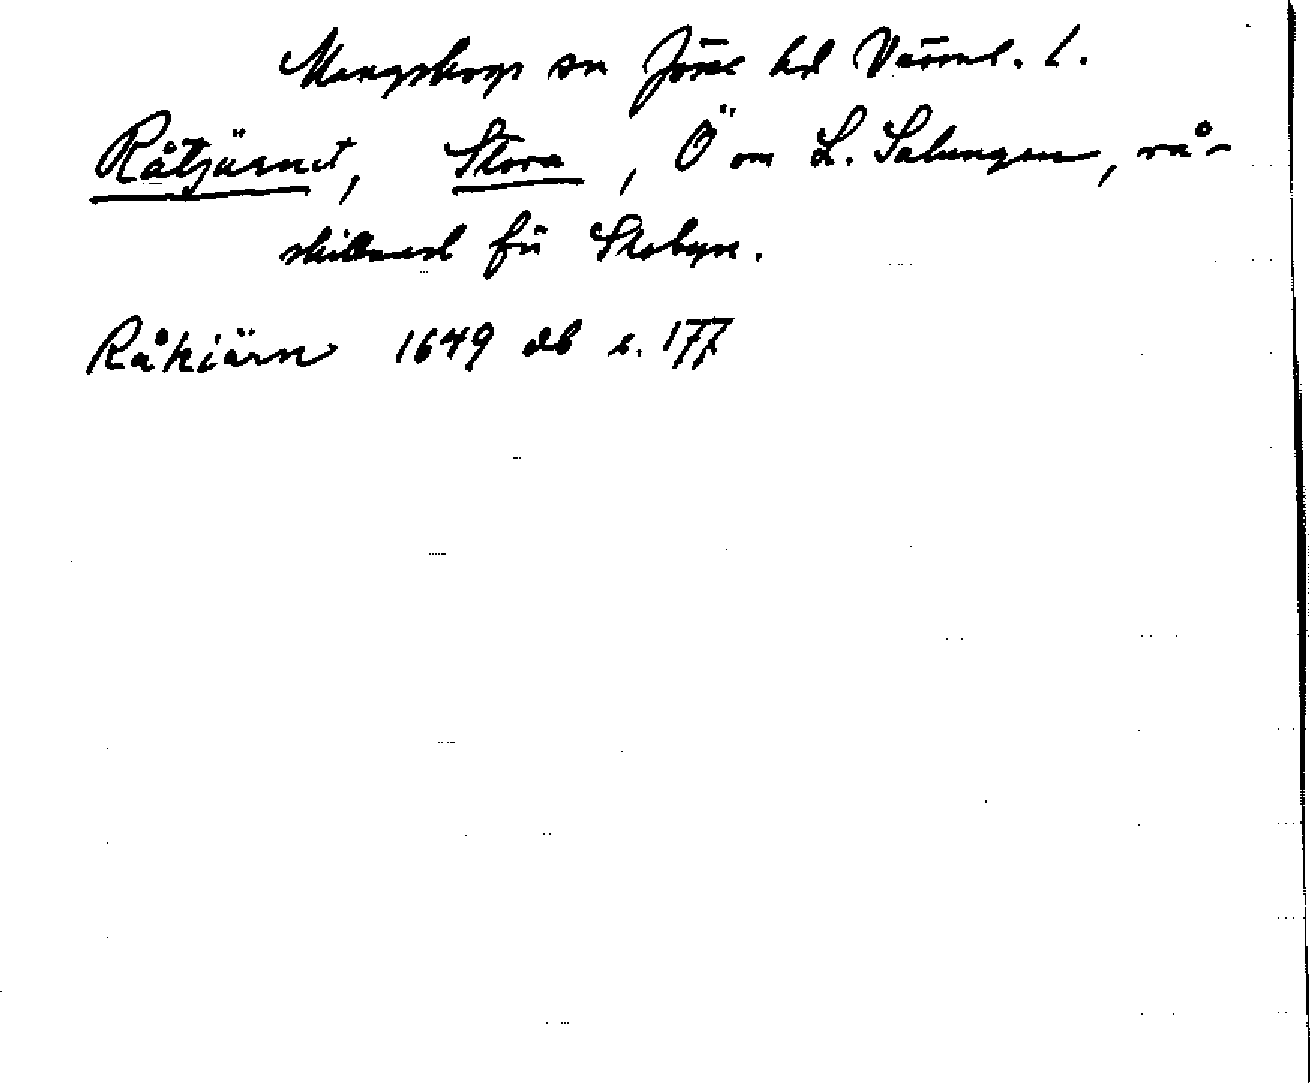 Mangskogs sn Jösse hd Värml. l.
Råtjärnet, Stora, Ö om L. Salungen, rå-
skillnad för Skobyn.
Råkiärn 1649 db s. 177